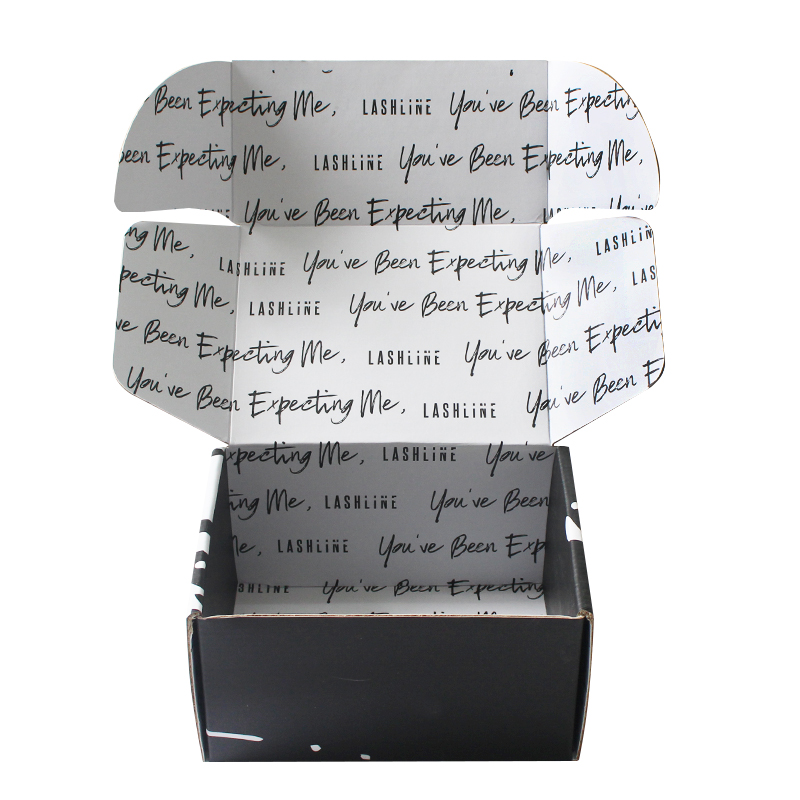 Been Expecting Me, LASHLiNE You've Been Expecting
Been Expecting Me, LASHLiNE You've Been Expecting Me,
You've Been Expecting Me,
Me, LASHLiNE You've Been Expecting Me, LASHLiN
Expecting Me, LASHLiNE You've Been Expecting Me, LAS
Been Expecting Me, LASHLiNE You've Been Expecti
You've Been Expecting Me, LASHLiNE You've Been E
xpecting Me, LASHLiNE You've
ting Me, LASHLiNE You've Been
Me, LASHLiNE You've Been Exp
SHLiNE You've Been Expecting